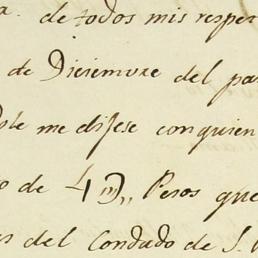 a. de todos mis respe
de Diciemvre del pa
me dijese con quien
o de 4 D,, Pesos que
del Condado de S.